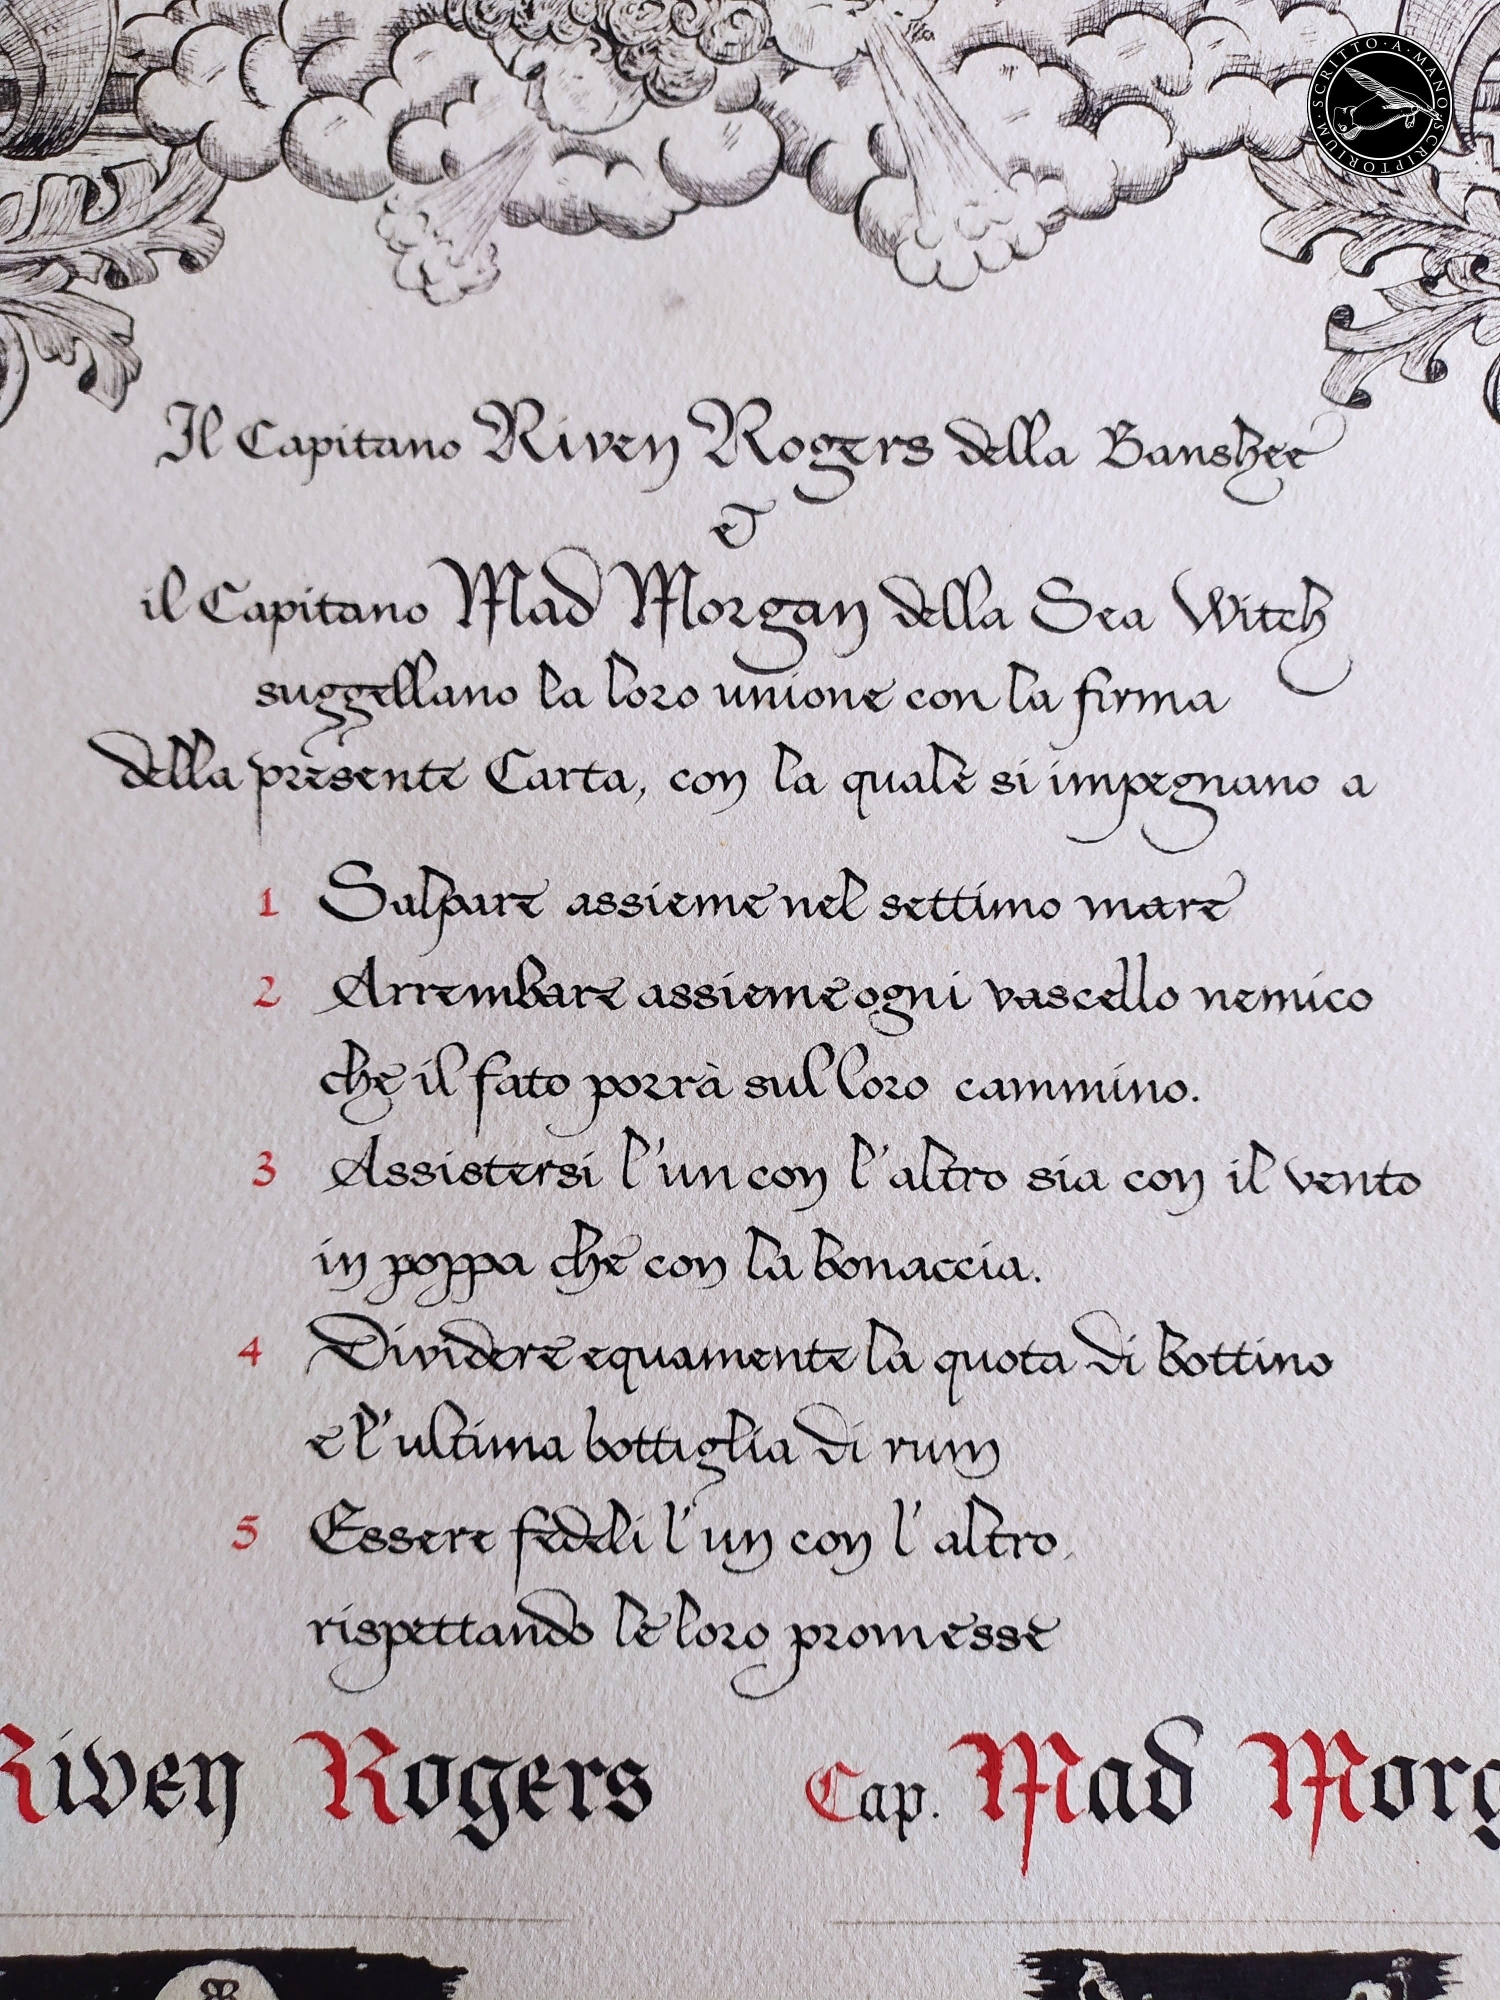 SCRITTO · A · MANO · SCRIPTORIUM ·
Il Capitano Riven Rogers della Banshee
&
il Capitano Mad Morgan della Sea Witch
suggellano la loro unione con la firma
della presente Carta, con la quale si impegnano a
1 Salpare assieme nel settimo mare
2 Arrembare assieme ogni vascello nemico
che il fato porrà sul loro cammino.
3 Assistersi l'un con l'altro sia con il vento
in poppa che con la bonaccia.
4 Dividere equamente la quota di bottino
e l'ultima bottiglia di rum
5 Essere fedeli l'un con l'altro,
rispettando le loro promesse
Riven Rogers
Cap. Mad Morg